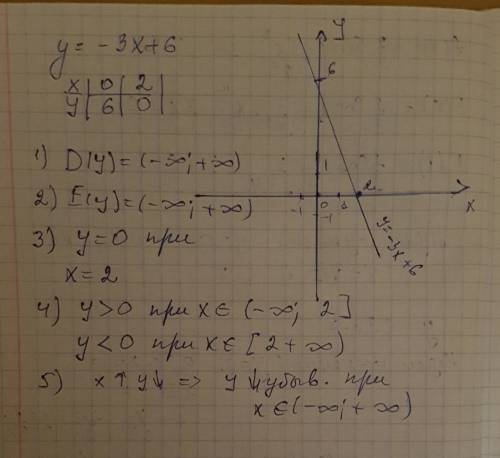 y = -3x+6
x | 0 | 2 |
y | 6 | 0 |
1) D(y)=(-∞;+∞)
2) E(y)=(-∞;+∞)
3) y=0 при
x=2
4) y>0 при x∈(-∞; 2]
y<0 при x∈[2+∞)
5) x↑y↓ => y↓убыв. при
x∈(-∞;+∞)
y
6
1
-1 0 2
-1
x
y=-3x+6